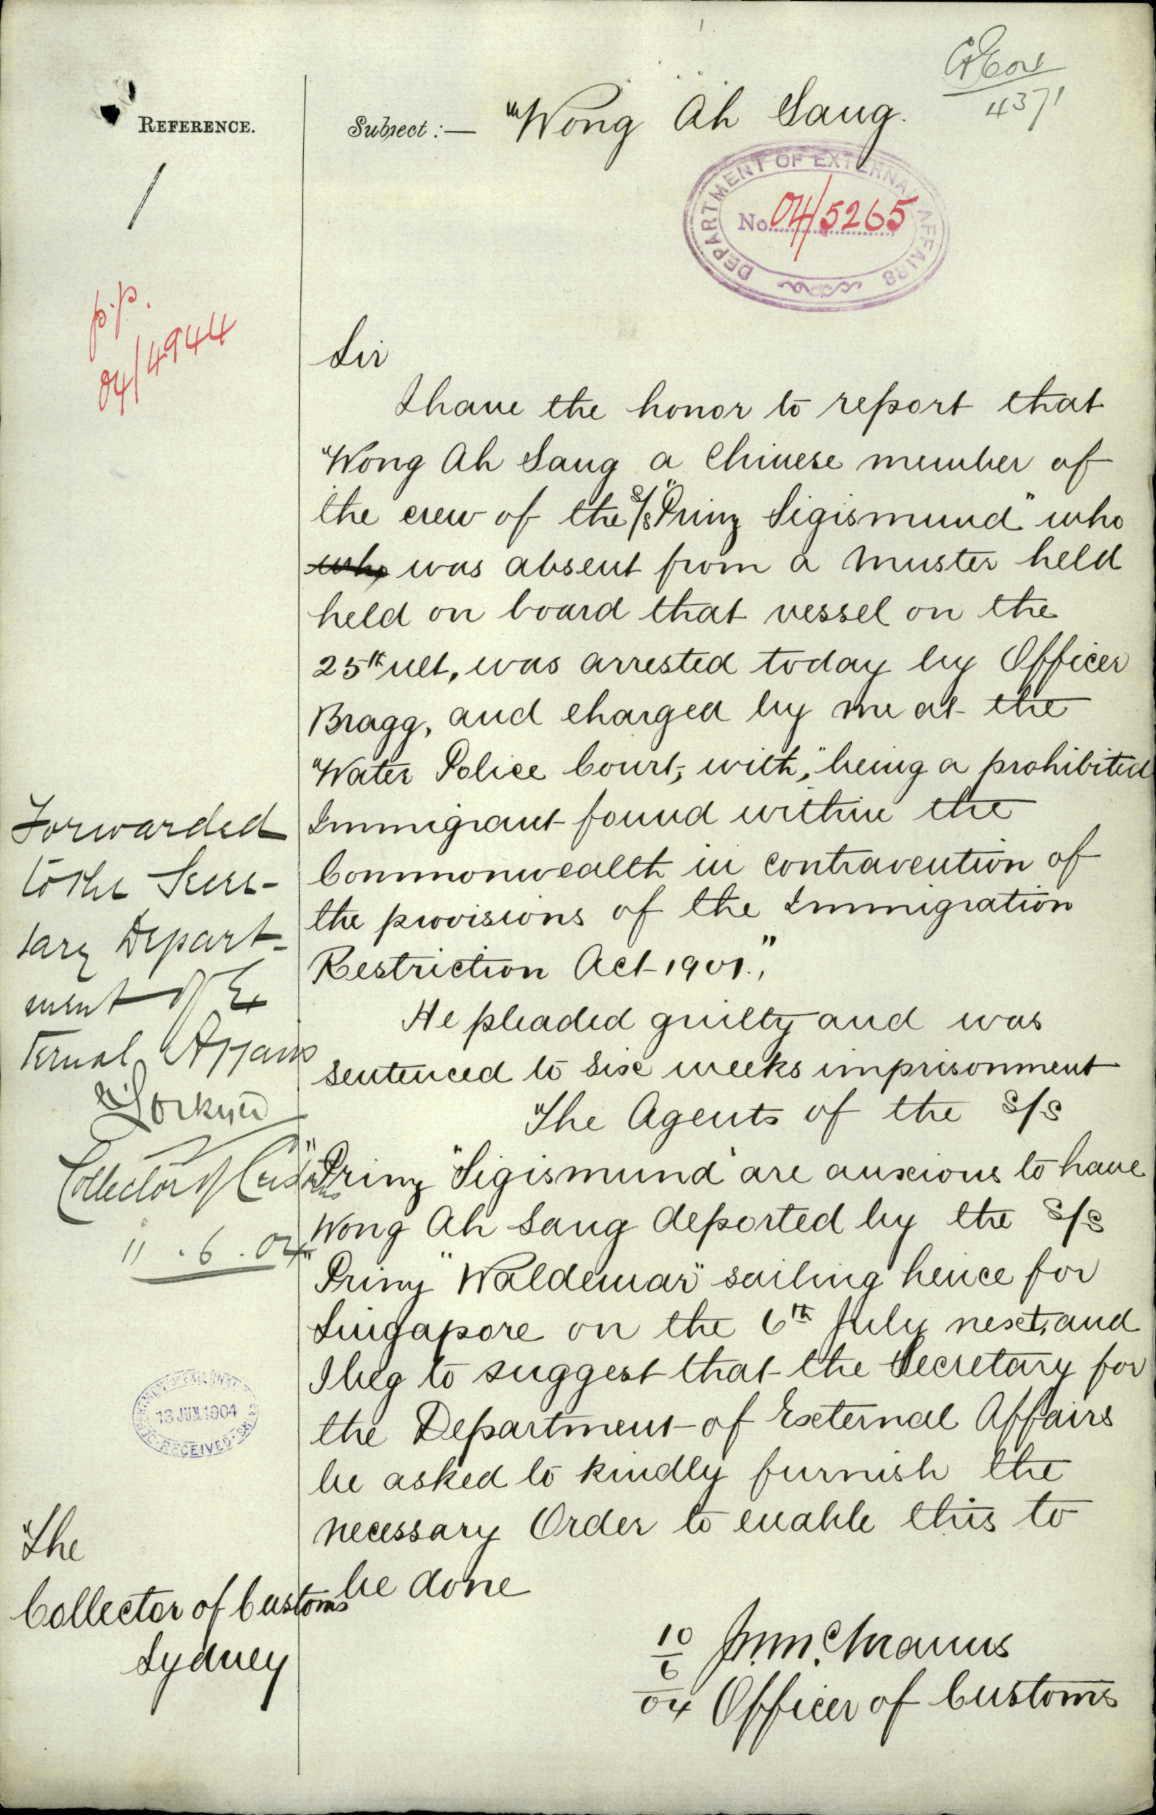 REFERENCE.
Subject:— "Wong Ah Sang.
4371
DEPARTMENT OF EXTERNAL AFFAIRS
No. 04/5265
p.p.
04/4944
Sir
I have the honor to report that
"Wong Ah Sang a Chinese member of
the crew of the s/s "Prinz Sigismund" who
who was absent from a muster held
held on board that vessel on the
25th ult, was arrested today by Officer
Bragg, and charged by me at the
"Water Police Court, with, "being a prohibited
Immigrant found within the
Commonwealth in contravention of
the provisions of the Immigration
Restriction Act 1901.,"
He pleaded guilty and was
sentenced to six weeks imprisonment
The Agents of the s/s
"Prinz "Sigismund" are anxious to have
Wong Ah Sang deported by the s/s
"Prinz" "Waldemar" sailing hence for
Singapore on the 6th July next, and
I beg to suggest that the Secretary for
the Department of External Affairs
be asked to kindly furnish the
necessary Order to enable this to
be done
10/6/04
Officer of Customs
Forwarded
to the Secre-
tary Depart-
ment of Ex
ternal Affairs
Collector of Customs
11.6.04
13 JUN. 1904
RECEIVED
The
Collector of Customs
Sydney